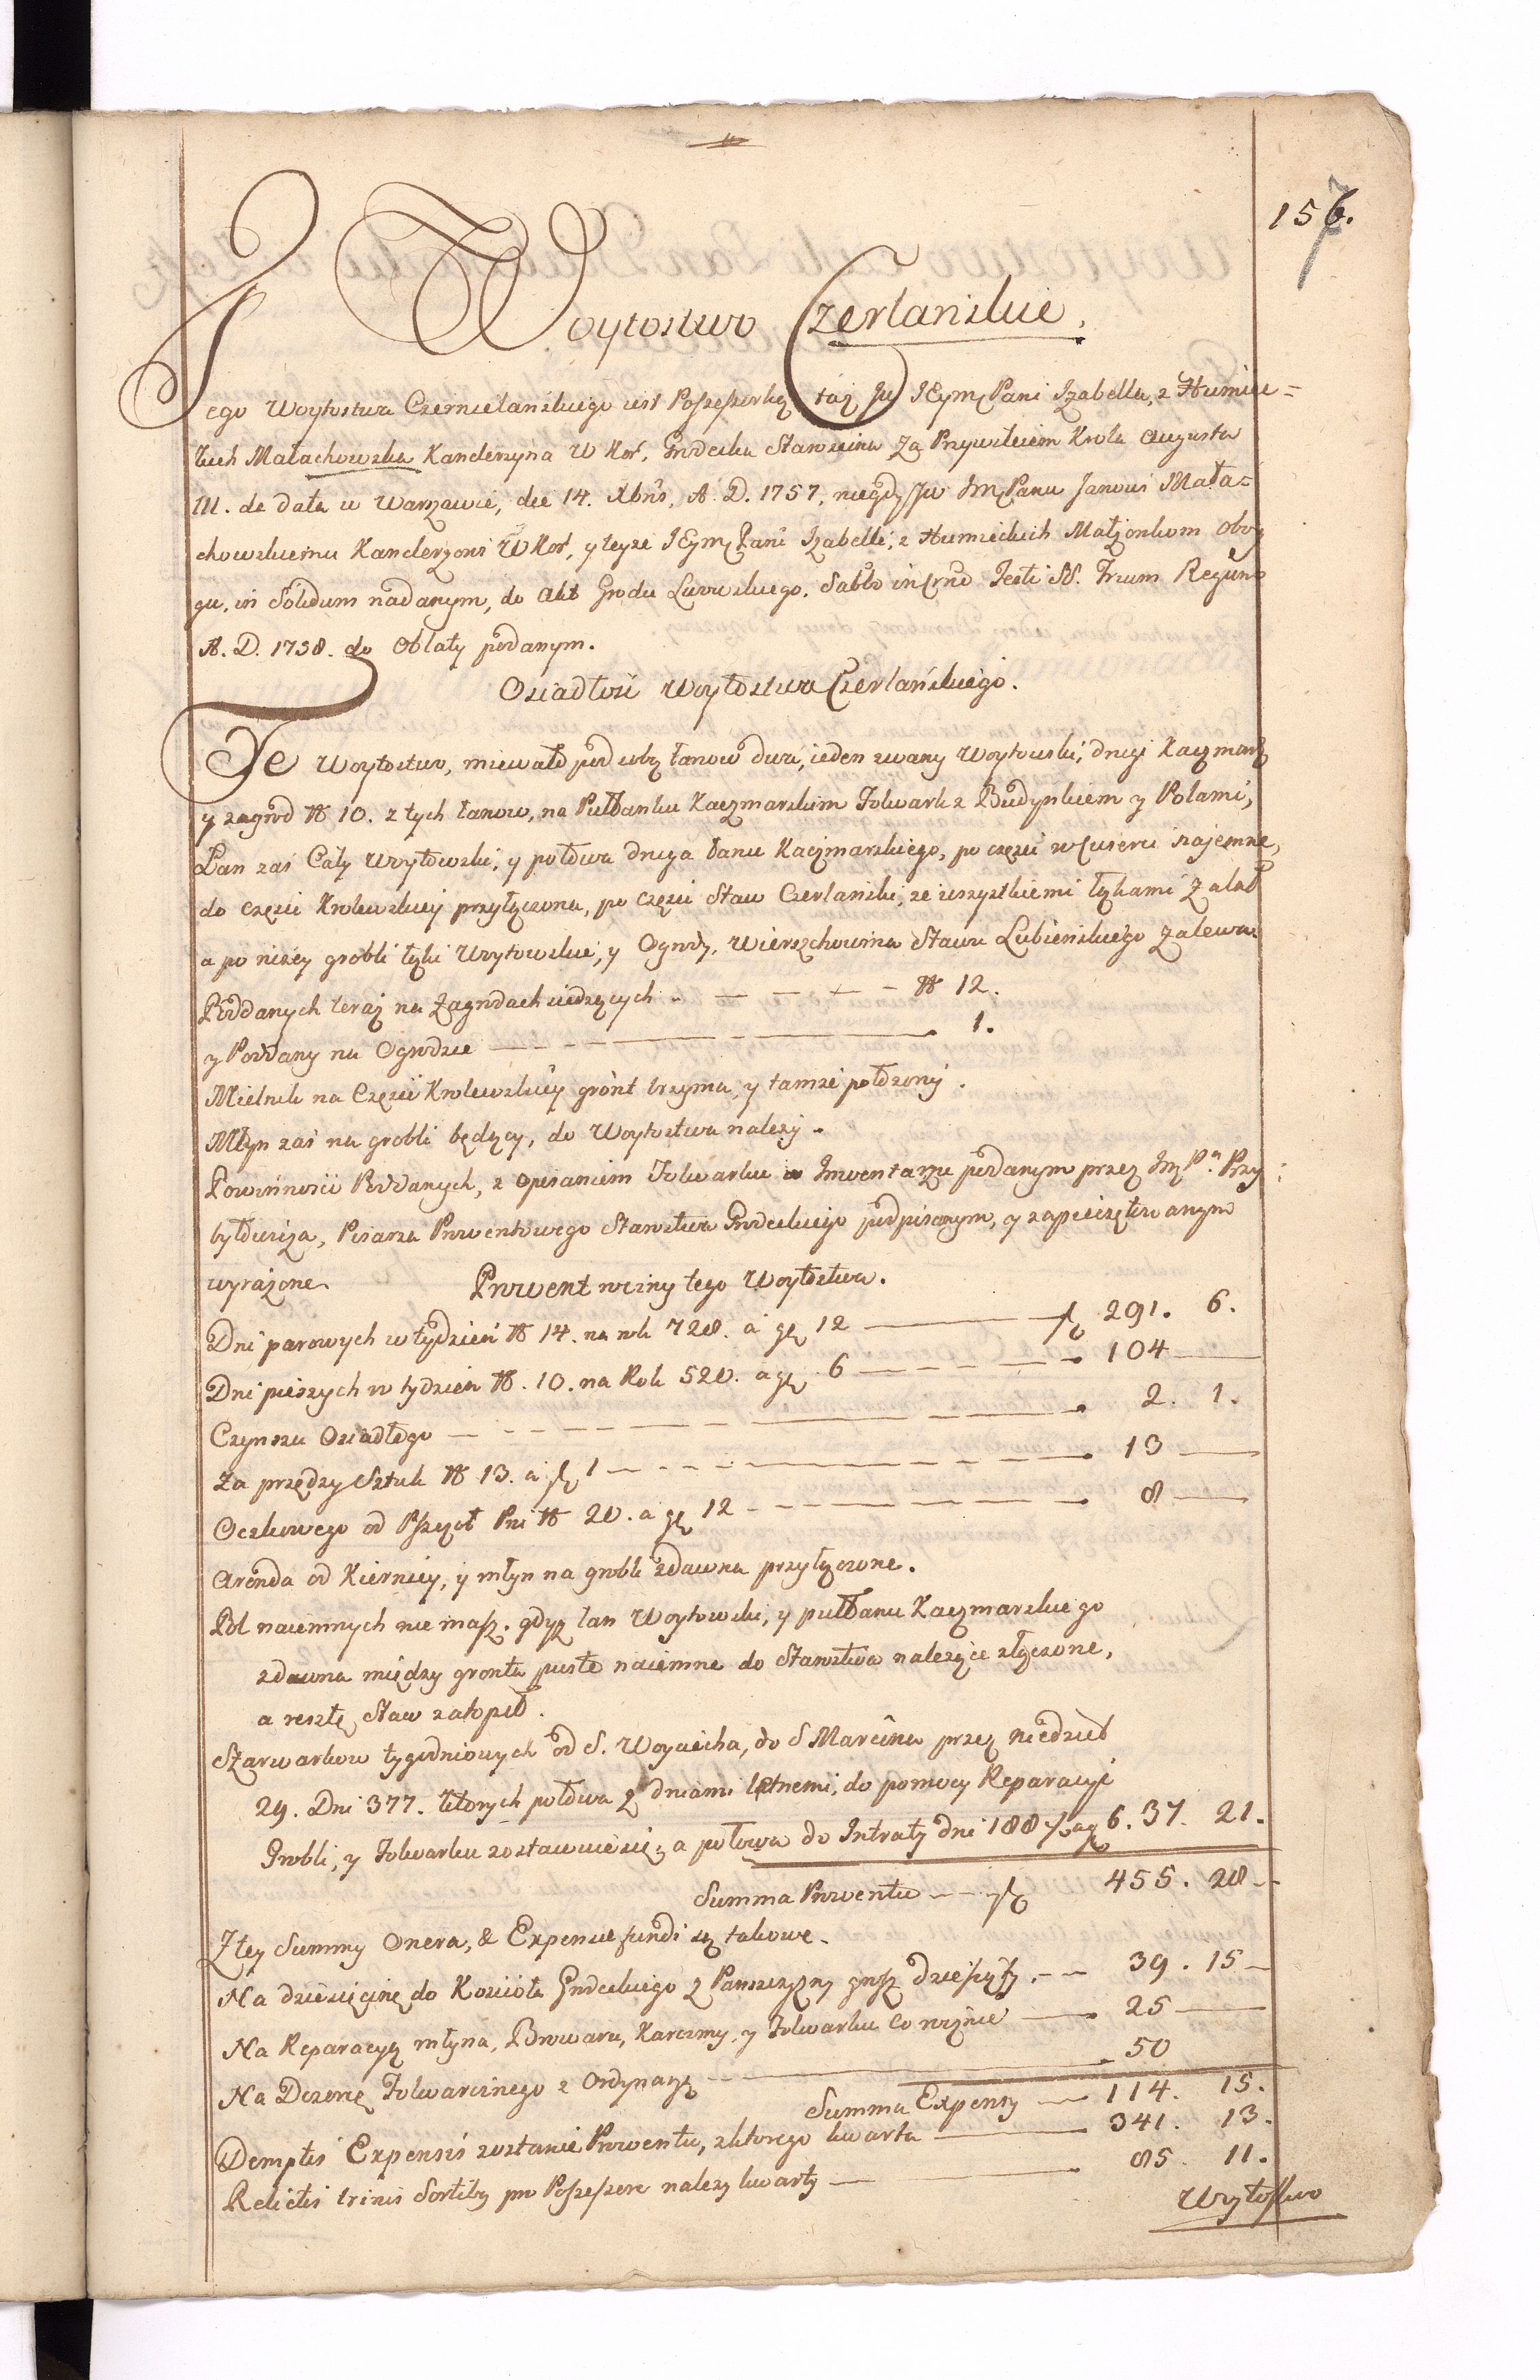 157.
Woytostwo Czerlanskie.
Tego Woytostwa Czernielanskiego iest Possessorką taż JW JEymć Pani Izabella, z Humiec=
kich Małachowska Kanclerzyna W Kor, Grodecka Starosцina Za Przywileiem Krola Augusta
III. de data w Warszawie, die 14. Xbris, A. D. 1757, niegdy JW Jmć Panu Janowi Mała=
chowskiemu Kanclerzowi W Kor, y teyże JEymć Pani Izabelli, z Humieckich Małżonkom oboy
gu, in Solidum nadanym, do Akt Grodu Lwowskiego. Sabbo in Crno Festi SS. Trium Regum
A. D. 1758. do Oblaty podanym.
Osiadłość Woytostwa Czerlańskiego.
Te Woytostwo, miewało pod sobą łanow dwa, ieden zwany Woytowski, drugi Kaczmarz
y zagrod № 10. z tych łanow, na Pułłanku Kaczmarskim Folwark z Budynkiem y Polami,
Łan zaś Cały Woytowski, y połowa druga łanu Kaczmarskiego, po części naiemne,
do części Krolewskiey przyłączona, po części Staw Czerlanski, ze wszystkiemi łąkami zalał
a po niżey grobli łąki Woytowskie, y Ogrody, wierzchowina Stawu Lubieńskiego zalewa.
Poddanych teraz na Zagrodach siedzących - — — — № 12.
y Poddany na Ogrodzie — — — 1.
Mielnik na Części Krolewskiey grónt trzyma, y tamże położony.
Młyn zaś na grobli będący, do Woytostwa należy.
Powinności Poddanych, z opisaniem Folwarku w Inwentarzu podanym przez Jmć Pa Przy
byłowicza, Pisarza Prowentowego Starostwa Grodeckiego podpisanym, y zapieczętowanym
wyrażone. Prowent roczny tego Woytostwa.
Dni parowych w tydzień № 14. na rok 728. á gr 12 — fl 291. 6.
Dni pieszych w tydzień №. 10. na Rok 520. a gr 6 — — 104 —
Czynszu Osiadłego — — — 2. 1.
Za przędzy Sztuk № 13. á fl 1 — — — 13 —
Oczkowego od Pszczół Pni № 20. a gr 12 — — — 8 —
Arenda od Kiernicy, y młyn na grobli zdawna przyłączone.
Pol naiemnych nie masz. gdyż łan Woytowski, y pułłanu Kaczmarskiego
zdawna między gronta puste naiemne do Starostwa należące złączone,
a resztę Staw zatopił.
Szarwarkow tygodniowych od S. Woyciecha, do S Marcina przez niedziel
29. Dni 377. ktorych połowa z dniami letnemi, do pomocy Reparacyi
Grobli, y Folwarku zostawuie się, a połowa do Intraty dni 188½ a gr 6. 37. 21.
Summa Prowentu — fl 455. 28 —
Z tey Summy Onera, & Expensae fundi są takowe.
Na dziesięcinę do Kościoła Grodeckiego z Panszczyzny grosz dziesiąty. — 39. 15 —
Na Reparacyą młyna, Browaru, Karczmy, y Folwarku co rocznie — 25 —
Na Dozorcę Folwarcznego z Ordynaryą — 50
Summa Expensy — 114. 15.
Demptis Expensis zostanie Prowentu, z ktorego kwarta — 341. 13.
Relictis trinis Sortibus pro Possessore należy kwarty — 85. 11.
Woytostwo